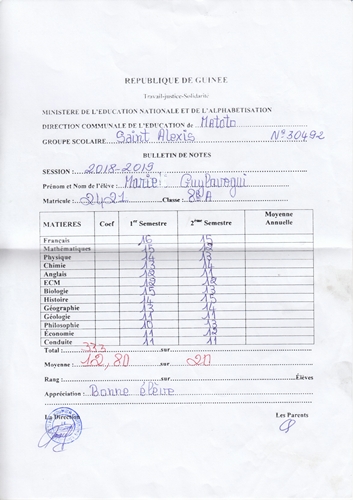 REPUBLIQUE DE GUINEE
Travail-justice-Solidarité
MINISTERE DE L'EDUCATION NATIONALE ET DE L'ALPHABETISATION
DIRECTION COMMUNALE DE L'EDUCATION de Matoto
GROUPE SCOLAIRE Saint Alexis N° 30492
BULLETIN DE NOTES
SESSION : 2018-2019
Prénom et Nom de l'élève : Marie Guylavogui
Matricule : 2421 Classe : 8è A
MATIERES Coef 1er Semestre 2ème Semestre Moyenne Annuelle
Français 16 15
Mathématiques 15 12
Physique 14 13
Chimie 13 14
Anglais 12 11
ECM 12 12
Biologie 15 13
Histoire 14 15
Géographie 13 14
Géologie 11 11
Philosophie 10 13
Économie 11 12
Conduite 11 11
Total : 333 sur
Moyenne : 12,80 sur 20
Rang : sur Élèves
Appréciation : Bonne élève
La Direction Les Parents